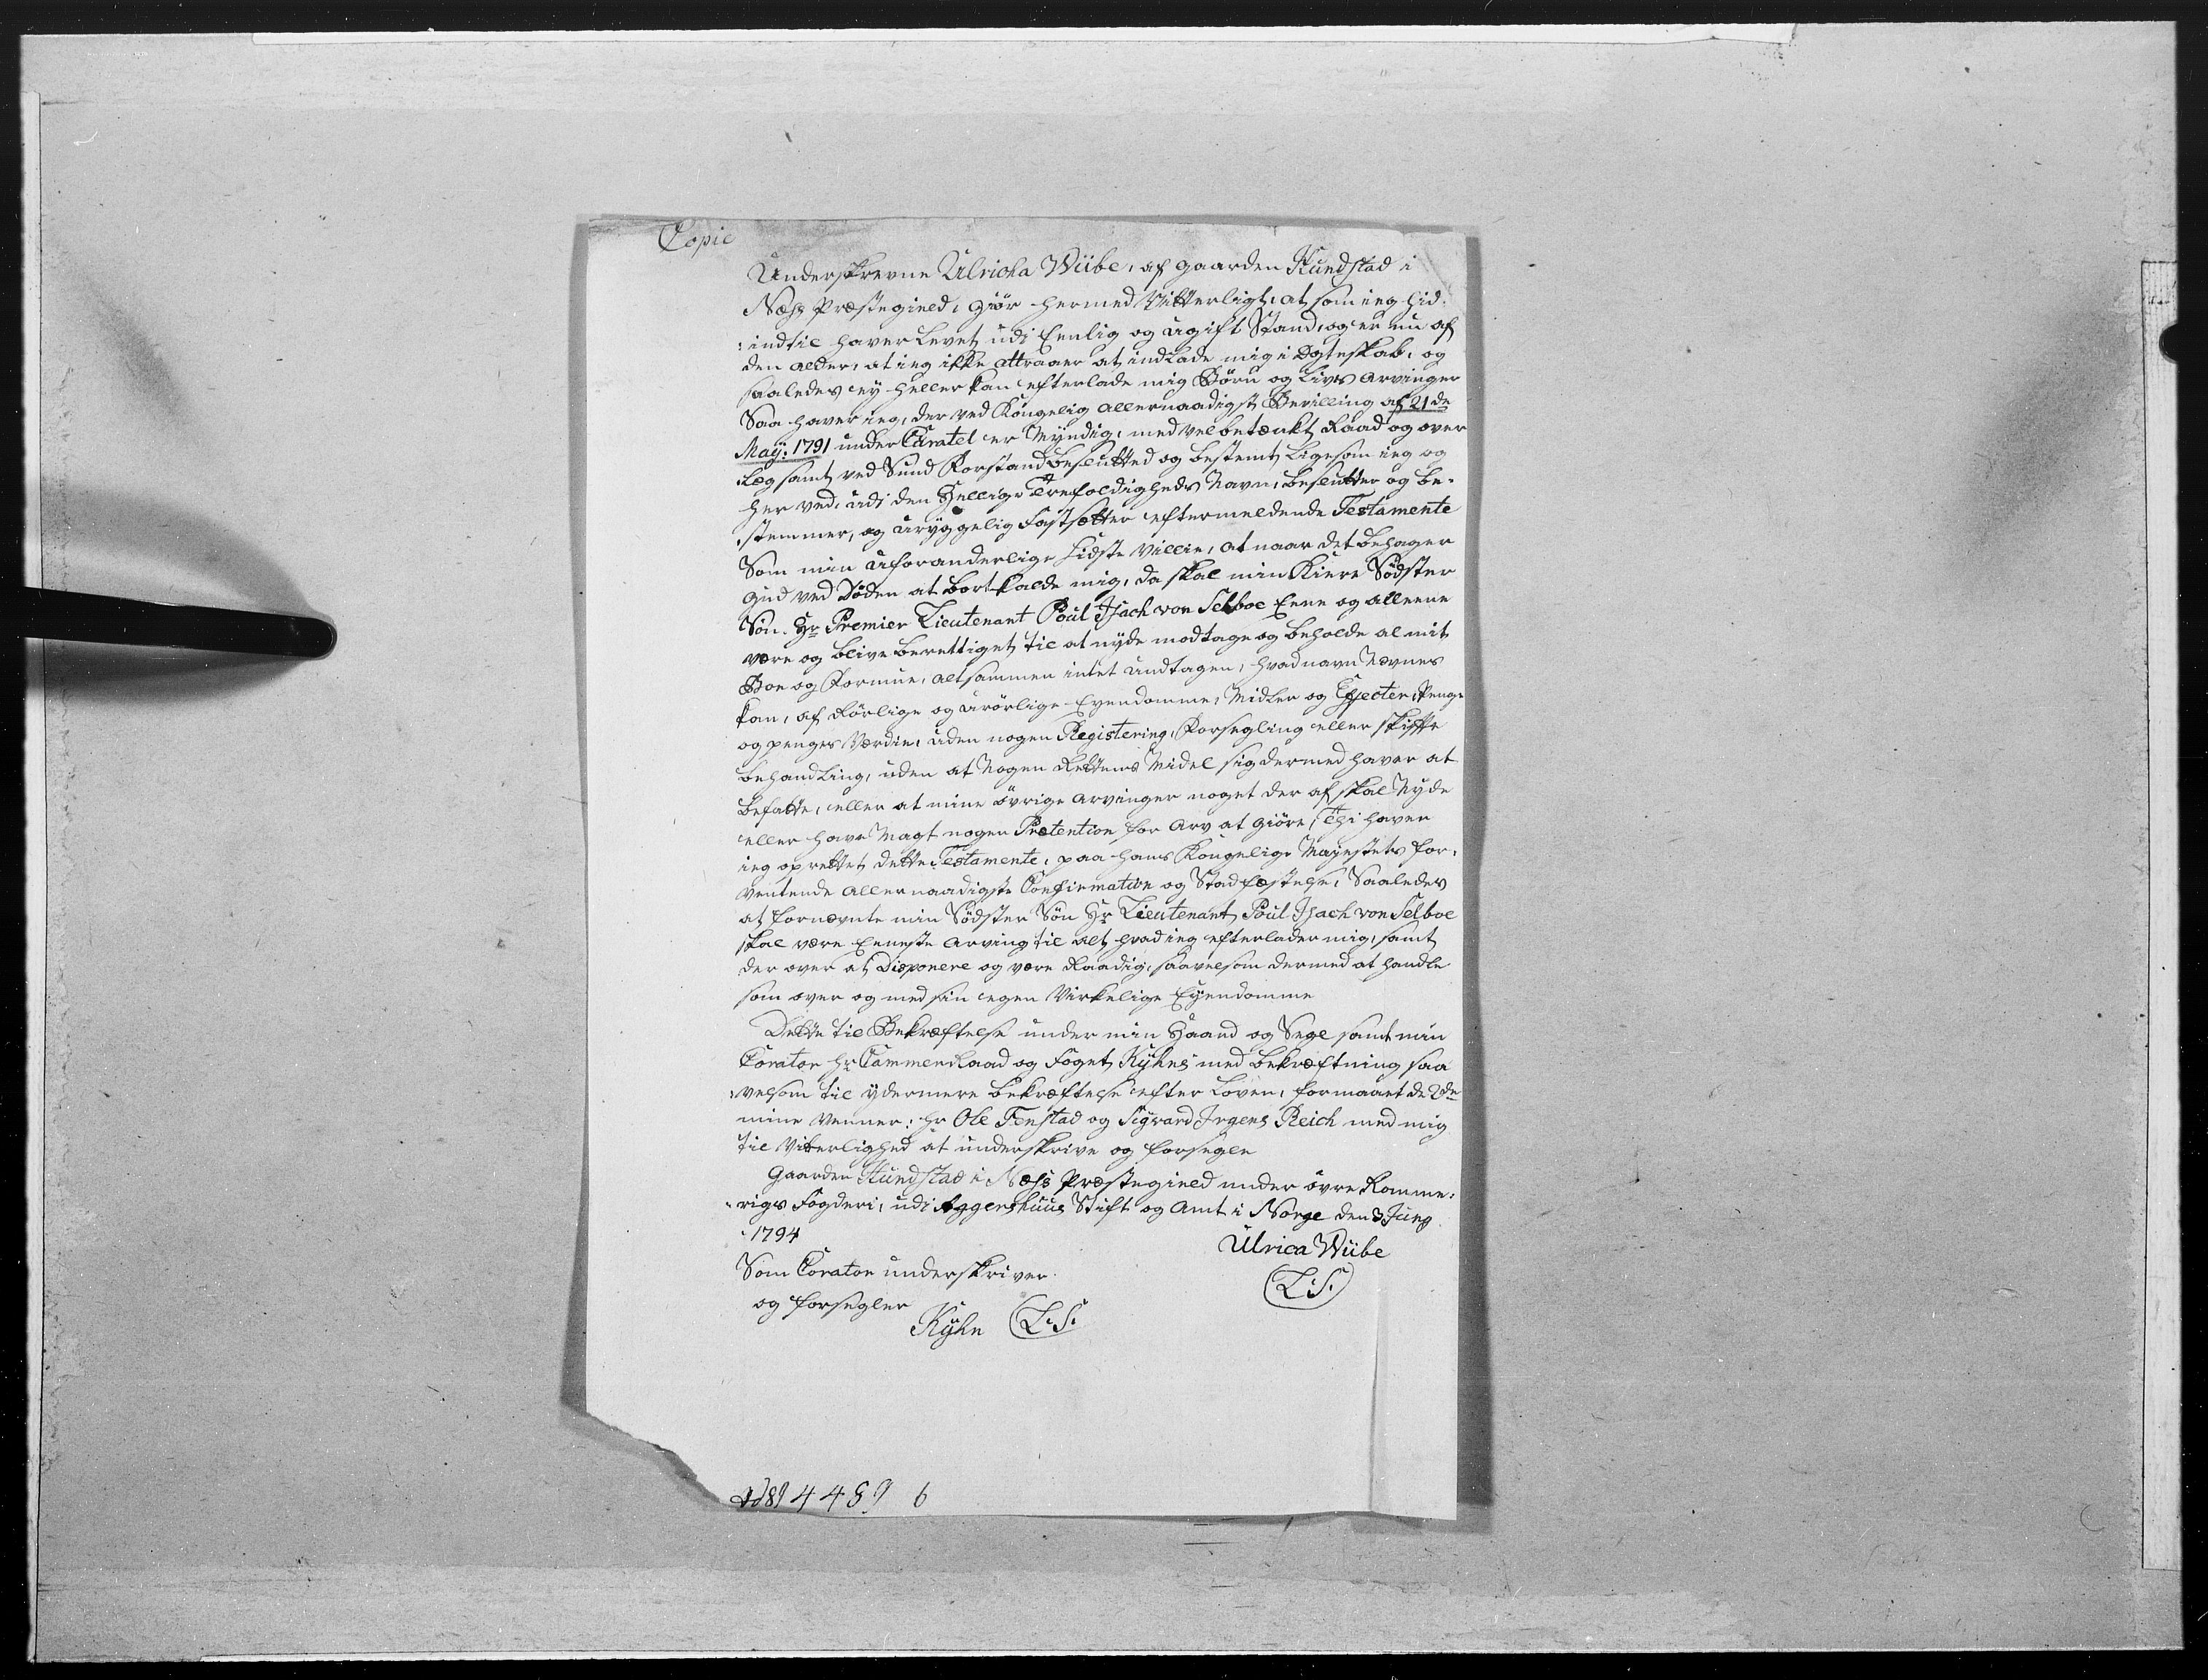 Copie
Underskrevne Ulricha Wiibe, af gaarden Hundstad i
Næss Præstegield, giör hermed Vitterligt, at som ieg hid-
indtil haver Levet udi Eenlig og Ugift Stand, og er nu af
den alder, at ieg ikke attraaer at indlade mig i Ægteskab, og
saaledes ey heller kan efterlade mig Börn og Livs Arvinger
Saa haver ieg, der ved Kongelig allernaadigst Bevilling af 21de
Maÿ 1791 under Curatel er Myndig, med velbetænkt Raad og over
læg samt ved Sund Forstand beslutted og bestemt ligesom ieg og
her ved, udi den Hellige Trefoldigheds Navn, beslutter og be-
stemmer, og Uryggelig Fastsætter eftermeldende Testamente
Som min Uforanderlige Sidste Villie, at naar det behager
Gud ved Döden at bortkalde mig, da skal min Kiere Södster
Sön Hr Premier Lieutenant Poul Isach von Selboe Eene og alleene
være og blive berettiget til at nyde modtage og beholde al mit
Boe og Formue, altsammen intet undtagen, hvad navn Nævnes
kan, af Rörlige og Urörlige Eyendomme, Midler og Effecter, Penge
og penges Værdie, uden nogen Registering, Forsegling eller skifte
behandling, uden at Nogen Rettens Midel sig dermed haver at
befatte, eller at mine övrige Arvinger noget der af skal Nyde
eller have Magt nogen Prætention for Arv at giöre, Thi haver
ieg oprettet dette Testamente, paa hans Kongelige Mayestets for-
ventende allernaadigste Confirmation og Stadfæstelse, Saaledes
at fornævnte min Södster Sön Hr Lieutenant Poul Isach von Selboe
skal være Eeneste Arving til alt hvad ieg efterlader mig, samt
der over at Disponere og være Raadig, saavelsom dermed at handle
som over og med sin egen Virkelige Eyendomme
Dette til Bekræftelse under min Haand og Segl samt min
Curator Hr CammerRaad og Foget Kÿhns med bekræftning saa
velsom til ydermere bekræftelse efter Loven, formaaet de 2de
mine Venner: Hr Ole Fenstad og Sigvard Irgens Reich med mig
til Vitterlighed at underskrive og forsegle
Gaarden Hundstad i Næss Præstegield under övre Romme-
rigs Fogderi, udi Aggershuus Stift og Amt i Norge den 3 Juny
1794
Ulrica Wiibe
Som Curator underskriver
(L.S.)
og forsegler
Kÿhn (L.S.)
4489 6